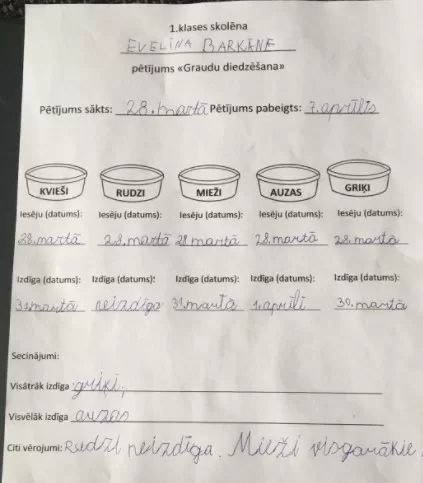 1.klases skolēna
EVELĪNA BARKĀNE
pētījums «Graudu diedzēšana»
Pētījums sākts: 28.martā Pētījums pabeigts: 7.aprīlis
KVIEŠI RUDZI MIEŽI AUZAS GRIĶI
Iesēju (datums): Iesēju (datums): Iesēju (datums): Iesēju (datums): Iesēju (datums):
28.martā 28.martā 28.martā 28.martā 28.martā
Izdīga (datums): Izdīga (datums): Izdīga (datums): Izdīga (datums): Izdīga (datums):
31.martā neizdīga 31.martā 1.aprīlī 30.martā
Secinājumi:
Visātrāk izdīga griķi,
Visvēlāk izdīga auzas
Citi vērojumi: Rudzi neizdīga. Mieži visgarākie.